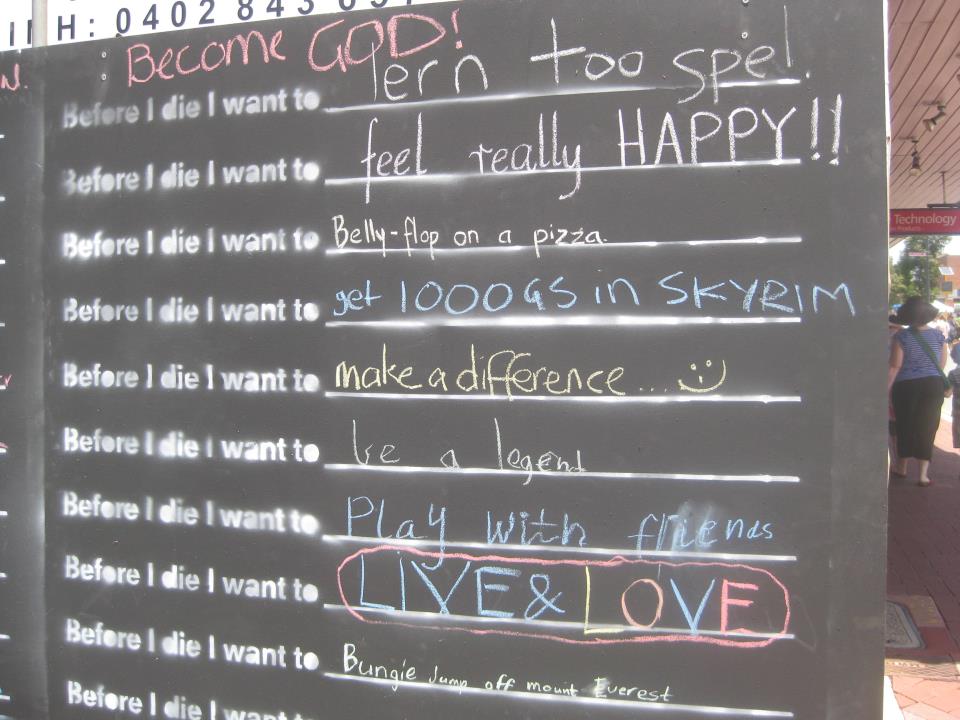 H: 0402 843
Become GOD!
Before I die I want to lern too spel.
Before I die I want to feel really HAPPY!!
Before I die I want to Belly-flop on a pizza.
Before I die I want to get 1000GS in SKYRIM
Before I die I want to make a difference.... :)
Before I die I want to be a legend
Before I die I want to Play with friends
Before I die I want to LIVE & LOVE
Before I die I want to Bungie Jump off mount Everest
Before I die I want to
Technology